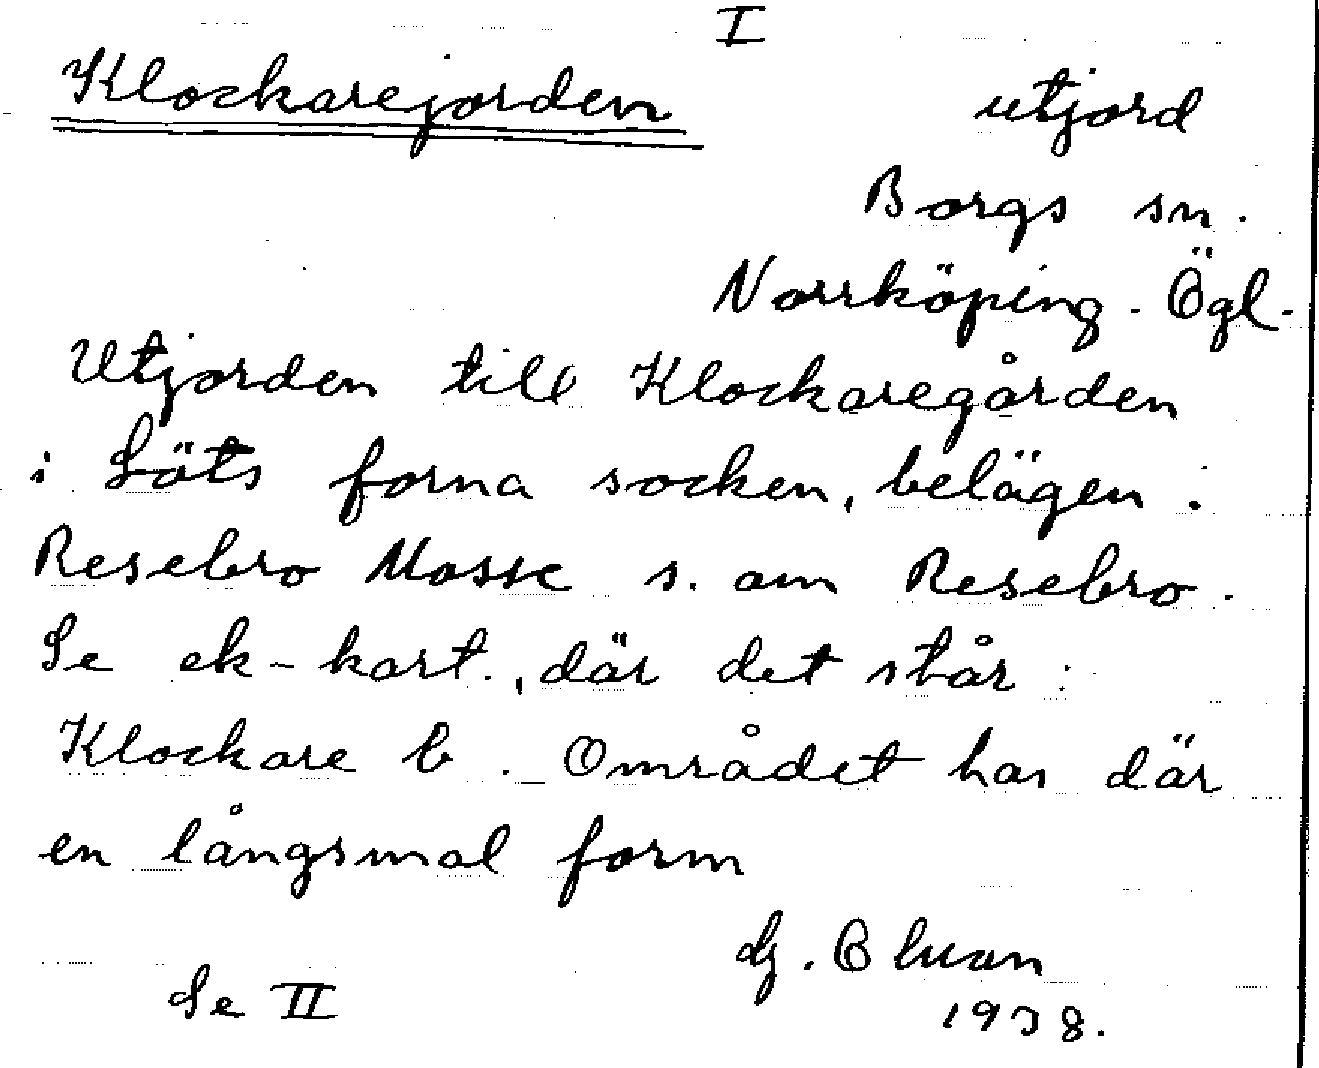 I
Klockarejorden utjord
Borgs sn.
Norrköping. Ögl.
Utjorden till Klockaregården
i Löts forna socken, belägen i
Resebro Mosse s. om Resebro.
Se ek-kart., där det står:
Klockare b. Området har där
en långsmal form
G.
Se II
1938.